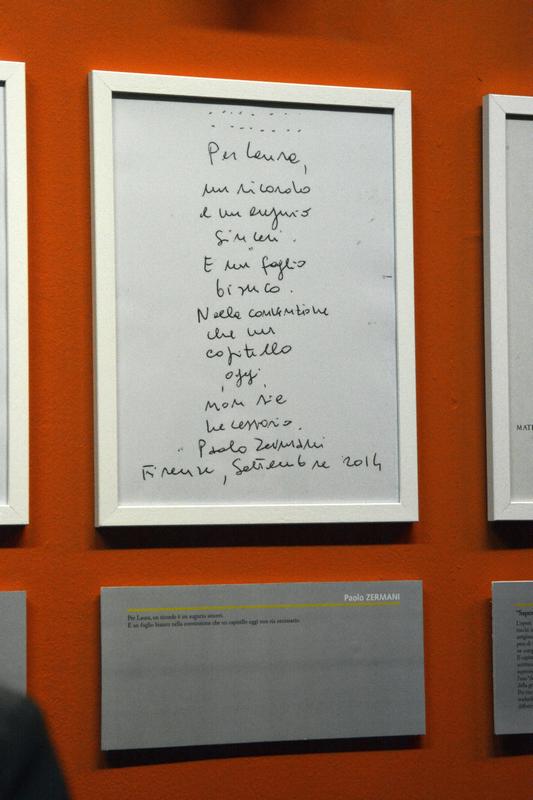 Per Laura,
un ricordo
e un augurio
sinceri.
E un foglio
bianco.
Nella convinzione
che un
capitello
oggi
non sia
necessario.
Paolo Zermani
Firenze, Settembre 2014
Paolo ZERMANI
Per Laura, un ricordo e un augurio sinceri.
E un foglio bianco nella convinzione che un capitello oggi non sia necessario.
MATE